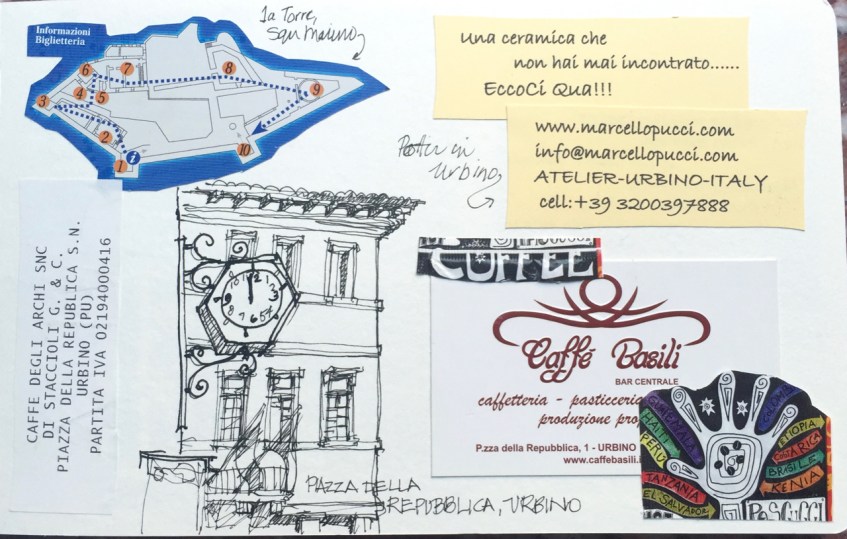 1a Torre,
San Marino
Informazioni
Biglietteria
6
7
8
9
4
5
3
2
1
i
10
una ceramica che
non hai mai incontrato......
EccoCi Qua!!!
in
Urbino
www.marcellopucci.com
info@marcellopucci.com
ATELIER-URBINO-ITALY
cell:+39 3200397888
CAFFE DEGLI ARCHI SNC
DI STACCIOLI G. & C.
PIAZZA DELLA REPUBLICA S.N.
URBINO (PU)
PARTITA IVA 02194000416
COFFEE
Caffé Basili
BAR CENTRALE
caffetteria - pasticceria
produzione
P.zza della Repubblica, 1 - URBINO
www.caffebasili.i
GUATEMALA
HAITI
PERÙ
TANZANIA
EL SALVADOR
ETIOPIA
BRASILE
KENIA
PASCUCCI
PIAZZA DELLA
REPUBBLICA, URBINO